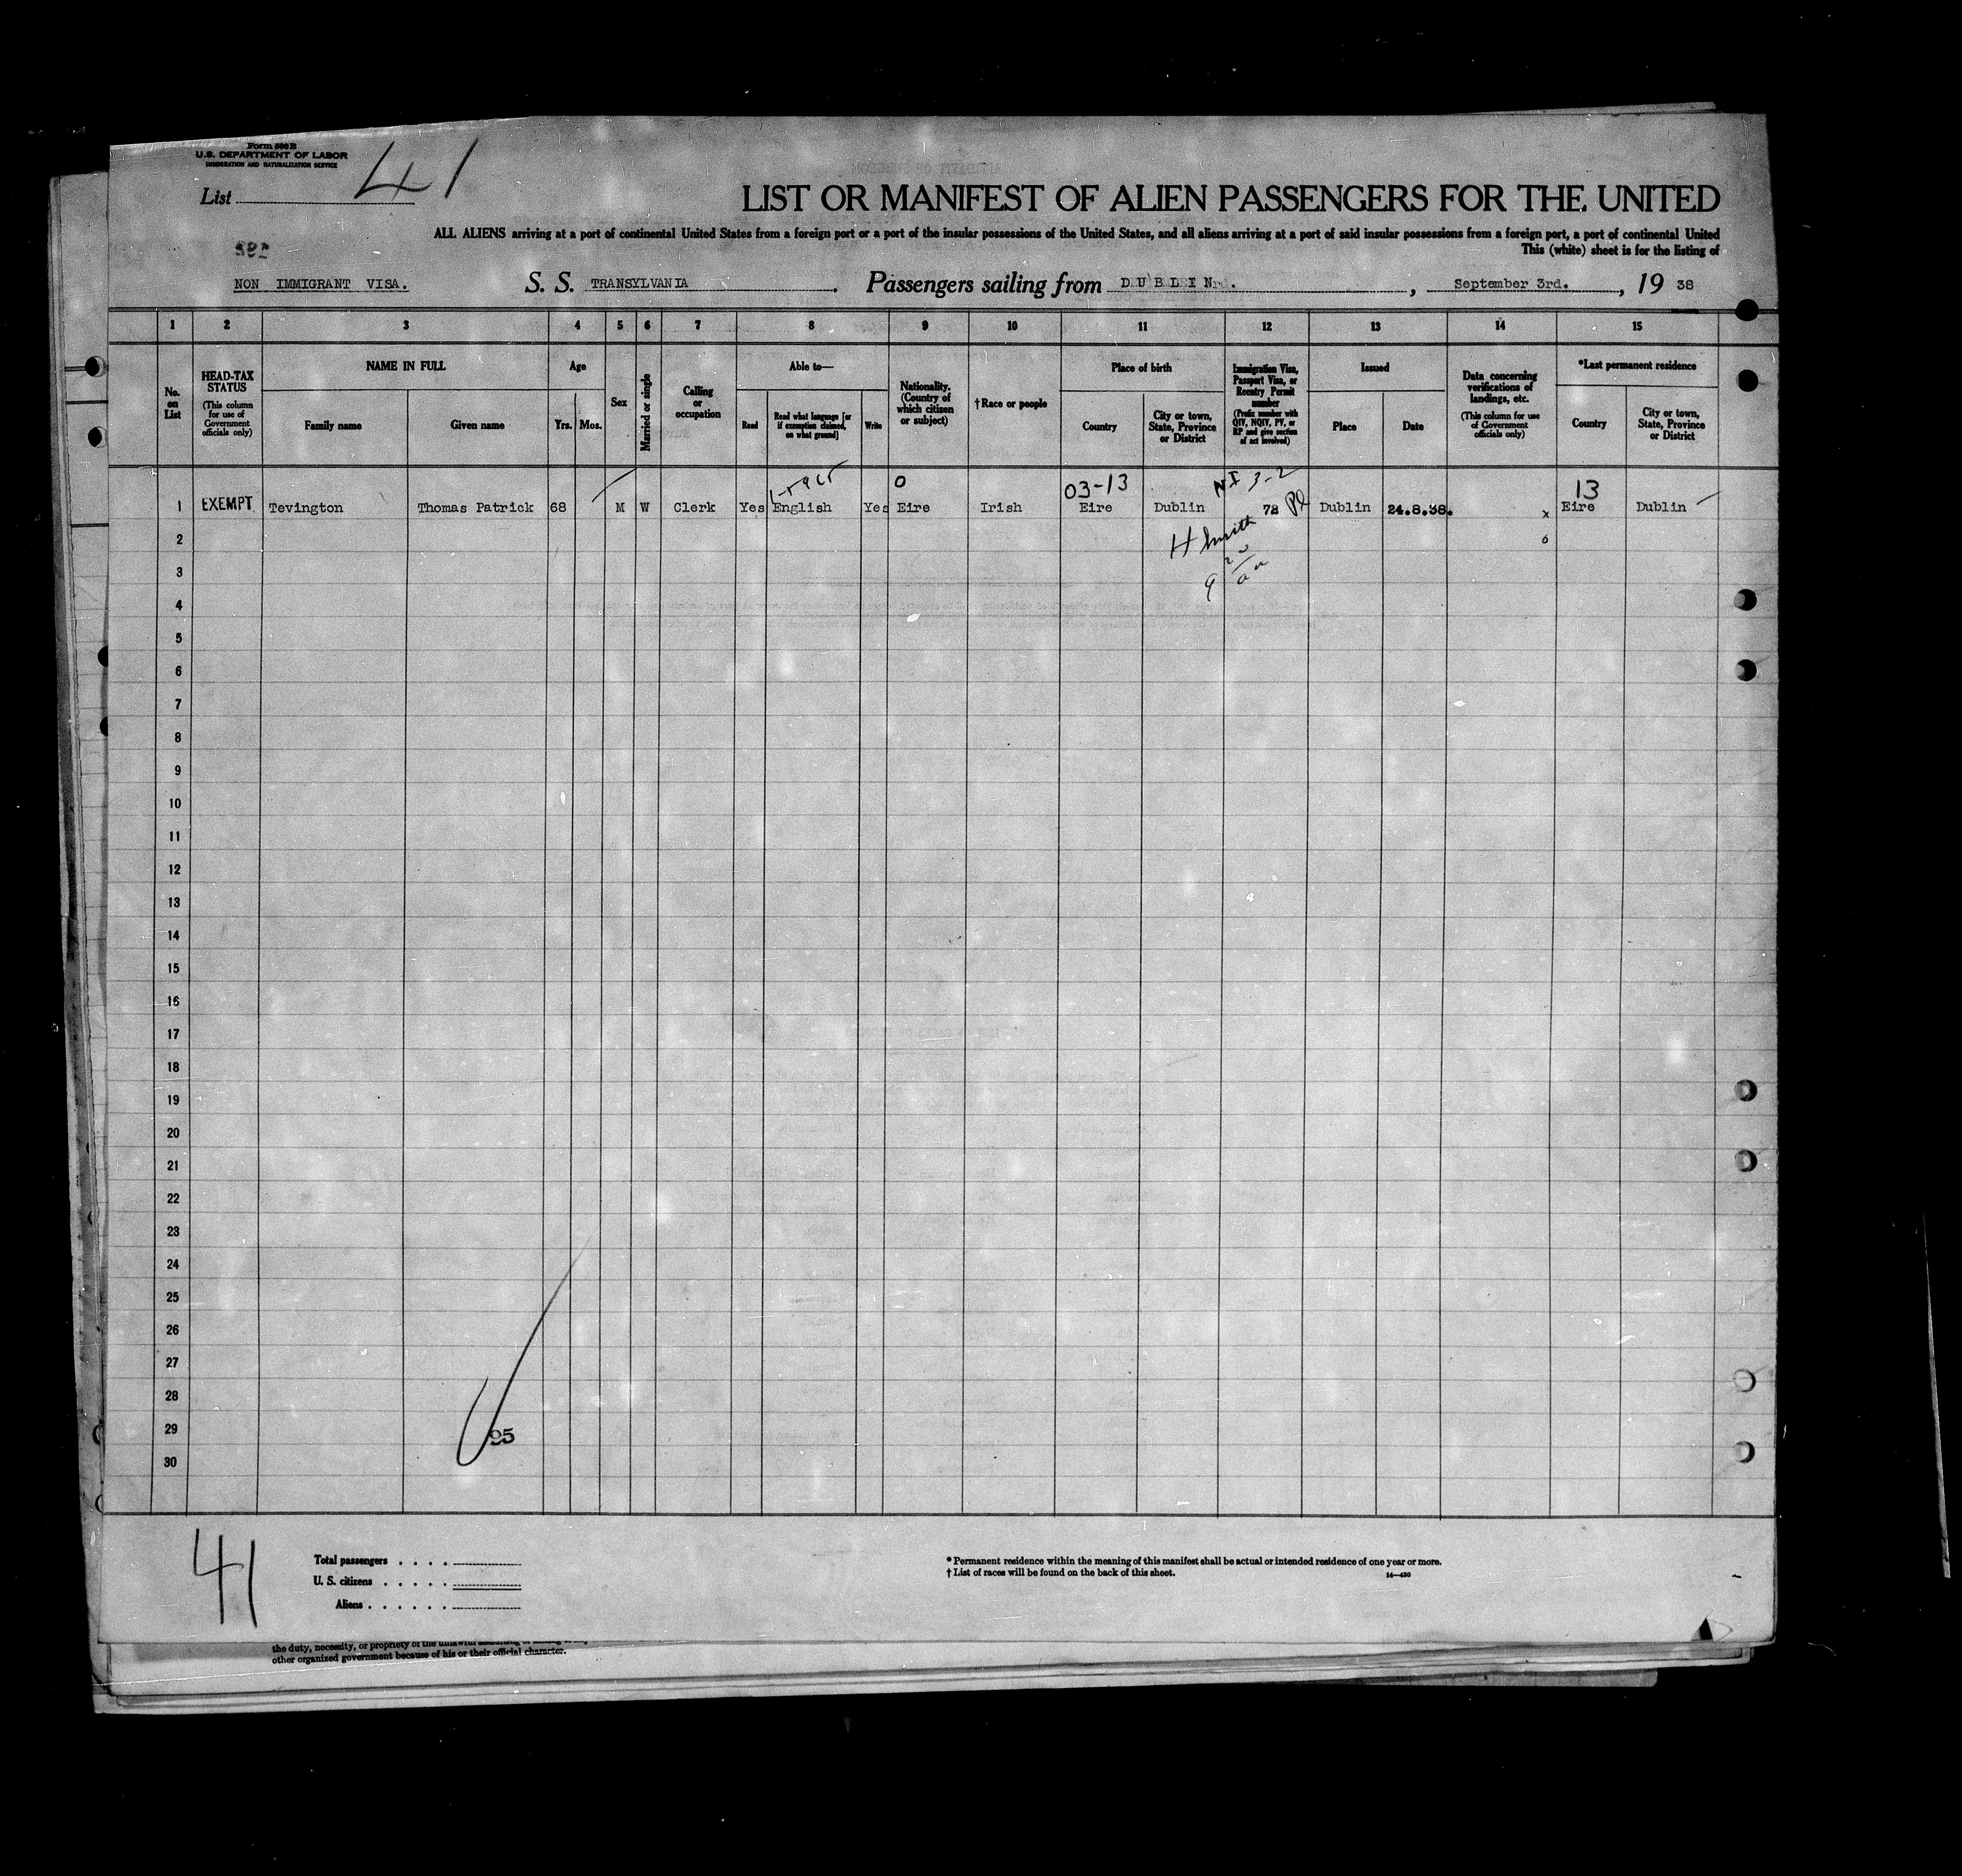 Form 500 B
U.S. DEPARTMENT OF LABOR
IMMIGRATION AND NATURALIZATION SERVICE
List 41
LIST OR MANIFEST OF ALIEN PASSENGERS FOR THE UNITED
ALL ALIENS arriving at a port of continental United States from a foreign port or a port of the insular possessions of the United States, and all aliens arriving at a port of said insular possessions from a foreign port, a port of continental United
This (white) sheet is for the listing of
NON IMMIGRANT VISA. S. S. TRANSYLVANIA. Passengers sailing from DUBLIN. , September 3rd. , 19 38
1 2 3 4 5 6 7 8 9 10 11 12 13 14 15
No. on List
HEAD-TAX STATUS (This column for use of Government officials only)
NAME IN FULL
Family name
Given name
Age
Yrs.
Mos.
Sex
Married or single
Calling or occupation
Able to—
Read
Read what language [or if exemption claimed, on what ground]
Write
Nationality. (Country of which citizen or subject)
†Race or people
Place of birth
Country
City or town, State, Province or District
Immigration Visa, Passport Visa, or Reentry Permit number (Prefix number with QIV, NQIV, PV, or RP and give section of act involved)
Issued
Place
Date
Data concerning verifications of landings, etc. (This column for use of Government officials only)
*Last permanent residence
Country
City or town, State, Province or District
0 03-13 NI 3-2 13
1 EXEMPT Tevington Thomas Patrick 68 M W Clerk Yes English Yes Eire Irish Eire Dublin 78 Dublin 24.8.38. x Eire Dublin
H Smith
2
3
4
5
6
7
8
9
10
11
12
13
14
15
16
17
18
19
20
21
22
23
24
25
26
27
28
29
95
30
41
Total passengers
U. S. citizens
Aliens
* Permanent residence within the meaning of this manifest shall be actual or intended residence of one year or more.
† List of races will be found on the back of this sheet.
14—430
the duty, necessity, or propriety of the unlawful
other organized government because of his or their official character.